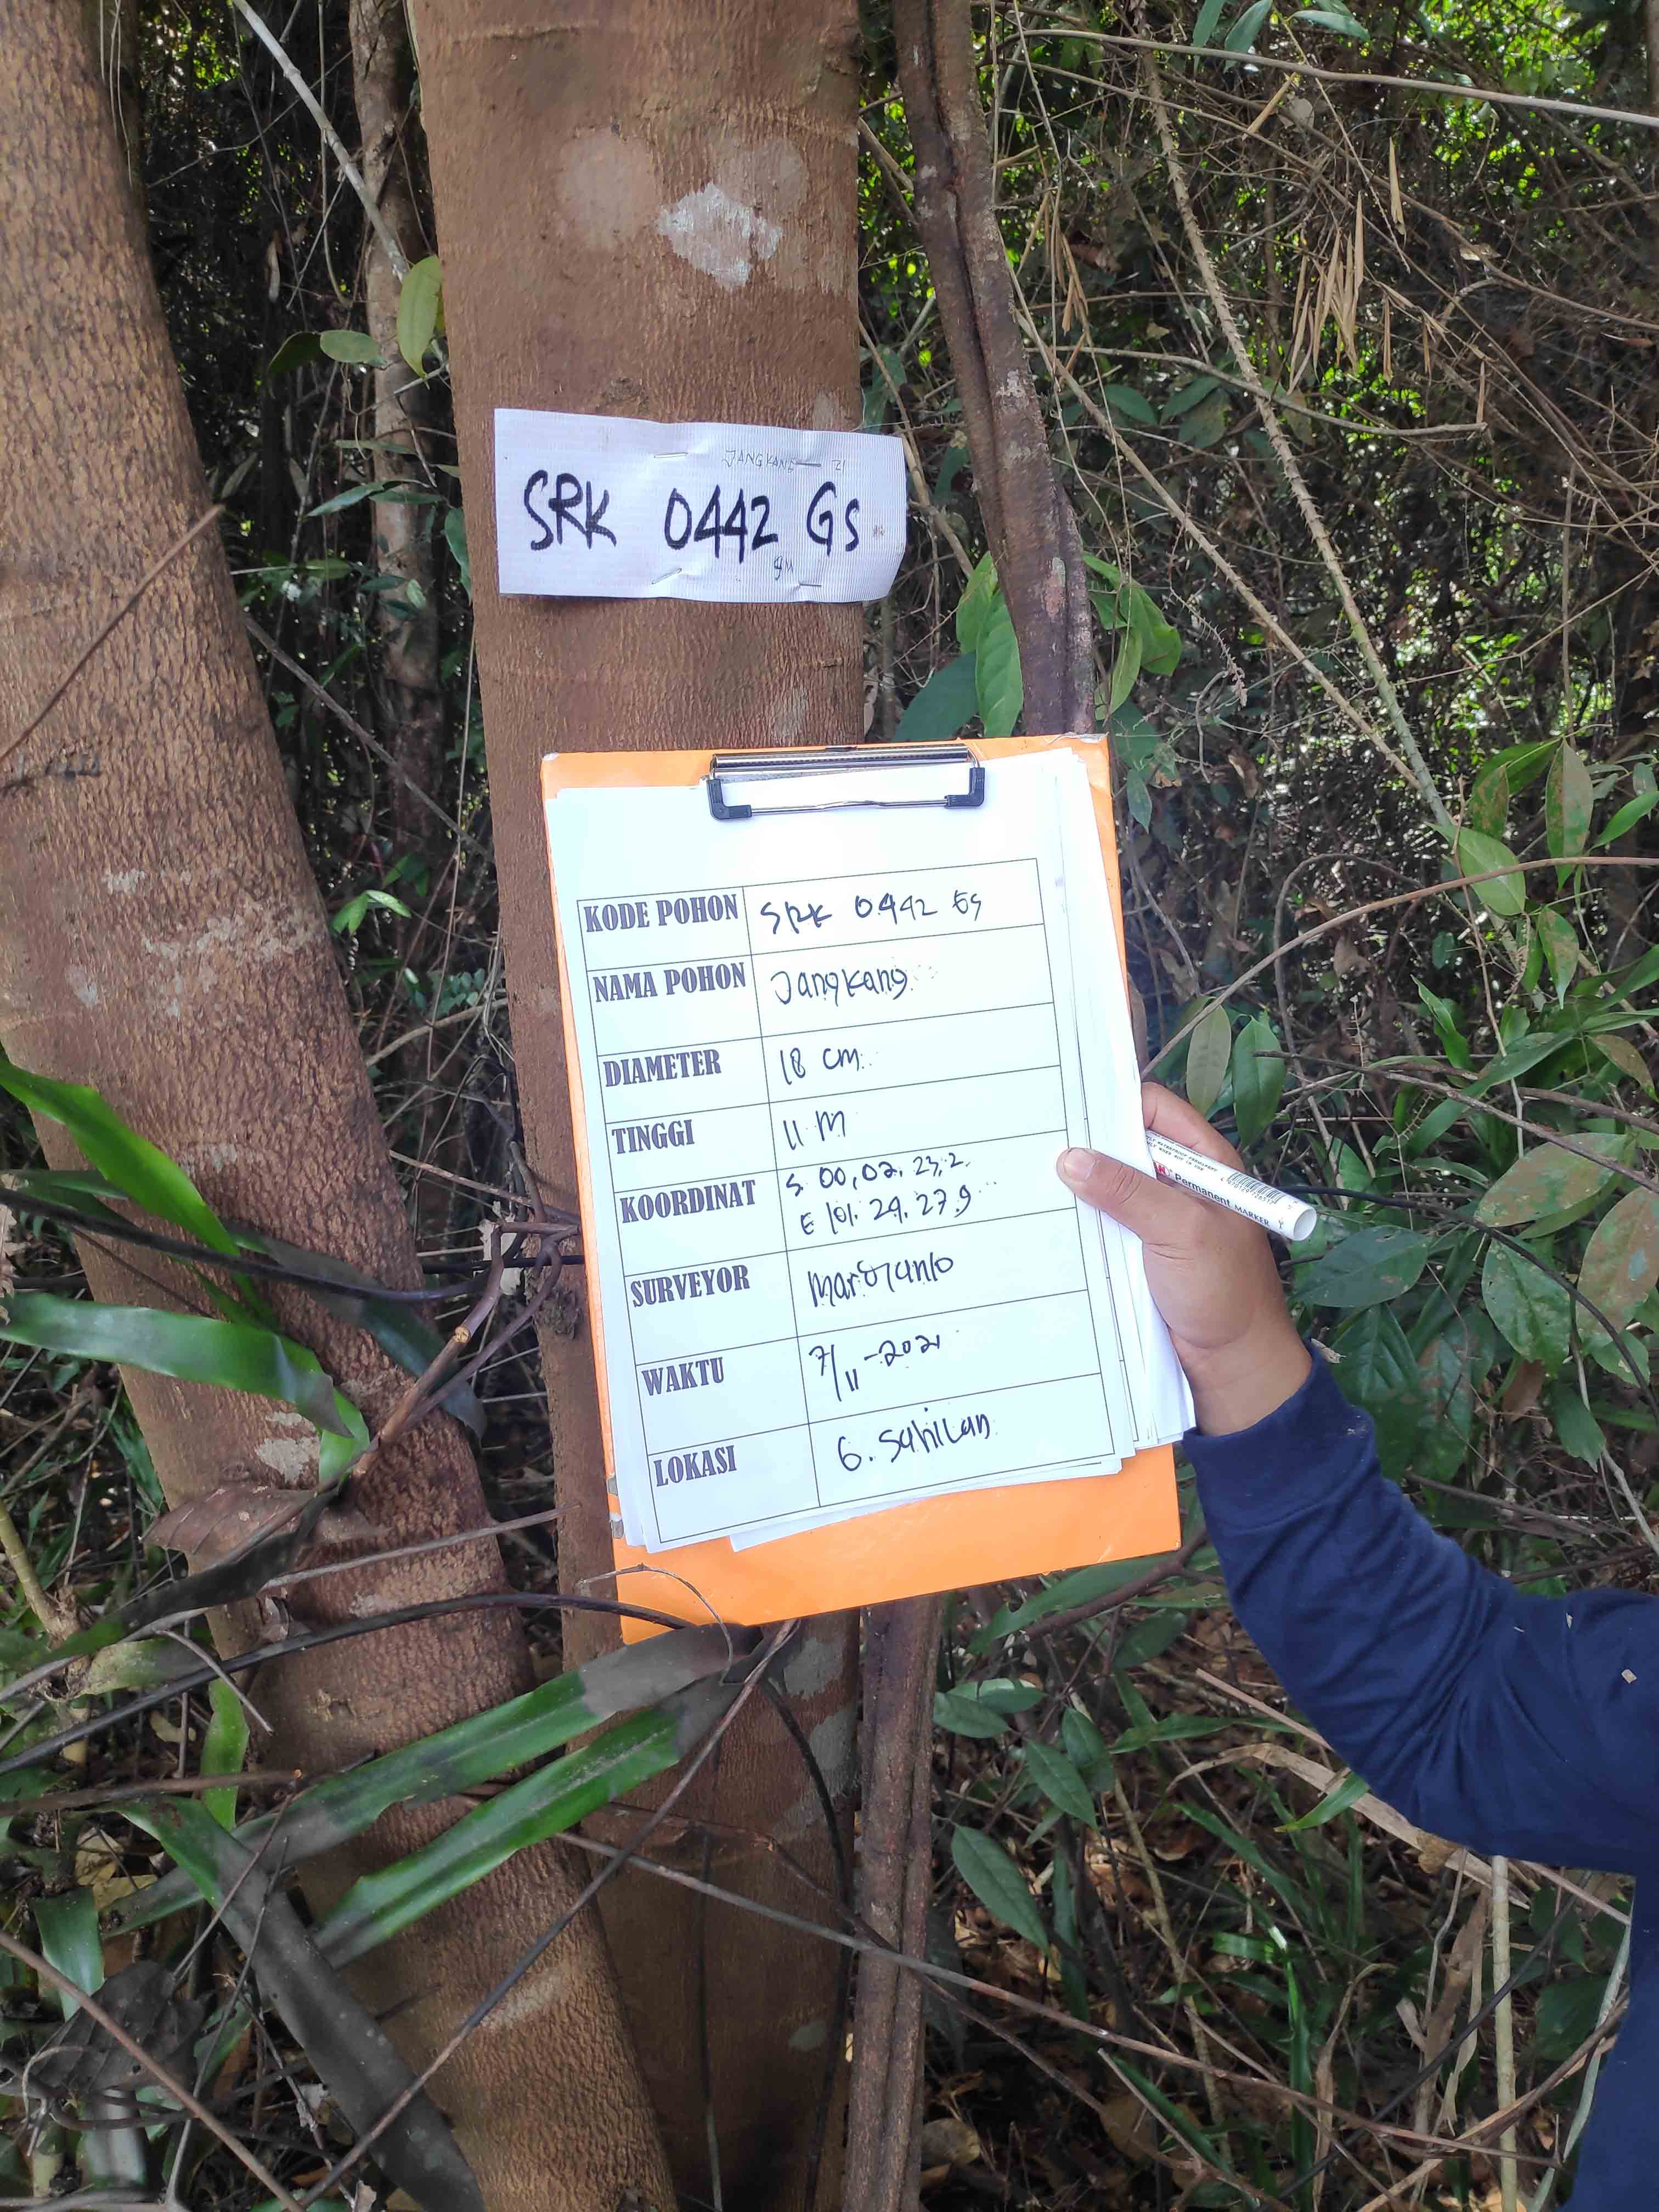 JANGKANG 21
SRK 0442 GS
9M
KODE POHON SRK 0442 GS
NAMA POHON Jangkang
DIAMETER 18 cm
TINGGI 11 M
KOORDINAT S 00,02.23,2
E 101.29.27.9
SURVEYOR
WAKTU 7/11-2021
LOKASI G. Sahilan
Permanent MARKER